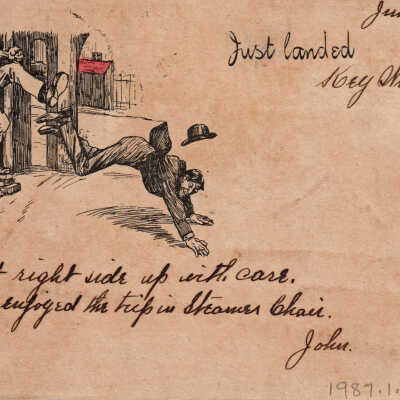 Just landed
Key
right side up with care.
enjoyed the trip in Steamer Chair.
John.
1987.1.